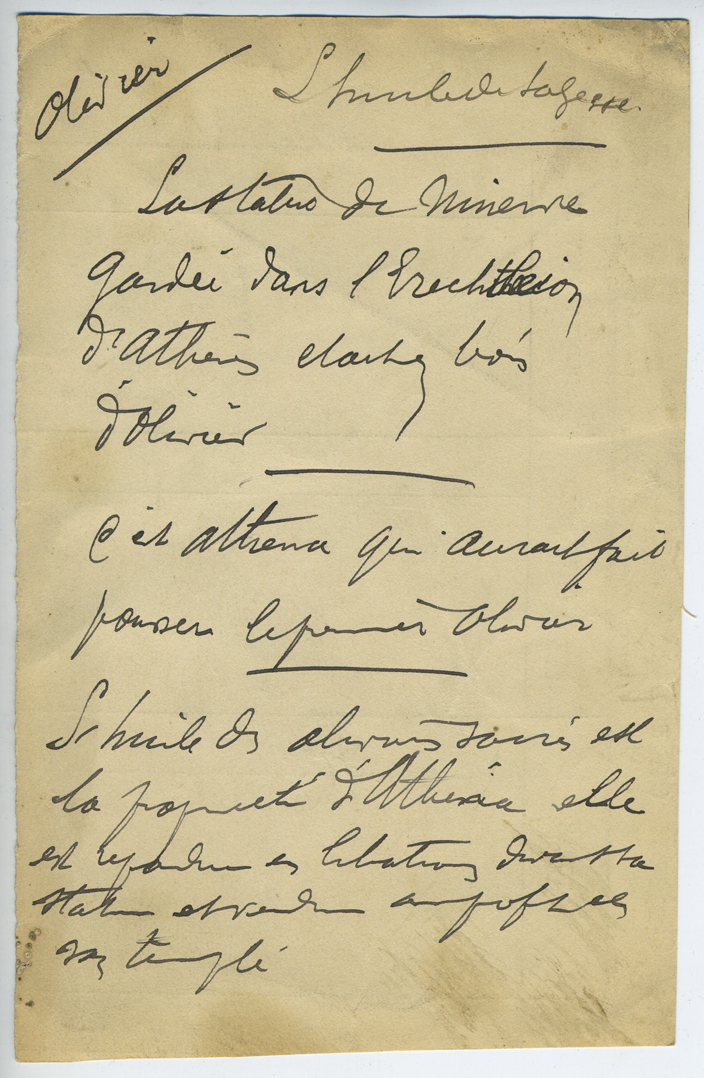 Olivier
L'huile de Sagesse.
La statue de Minerve
gardée dans l'Erechtheion
d'Athènes etait en bois
d'Olivier
C'est Athena qui aurait fait
pousser le premier Olivier
L'huile des oliviers sacrés est
la propriété d'Athéna elle
est repandue en libations devant sa
statue et vendue au profit de
son temple